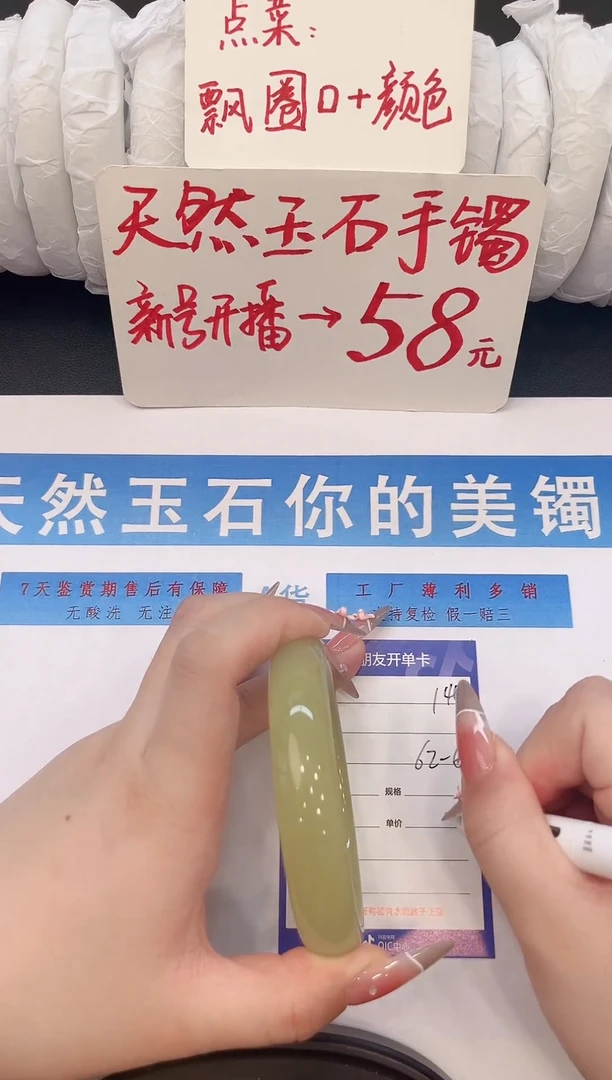 点菜:
飘圈口+颜色
天然玉石手镯
新号开播→58元
天然玉石你的美镯
7天鉴赏期售后有保障
无酸洗 无注
货
工厂薄利多销
支持复检 假一赔三
朋友开单卡
14
62-6
规格
单价
QIC中心